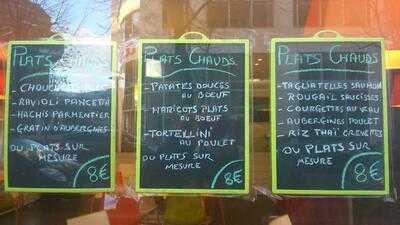 PLATS CHAUDS
- CHOUC
- RAVIOLI PANCETTA
- HACHIS PARMENTIER
- GRATIN D'AUBERGINES
OU PLATS SUR
MESURE
8€
PLATS CHAUDS
- PATATES DOUCES
AU BOEUF
- HARICOTS PLATS
AU BOEUF
- TORTELLINI
AU POULET
OU PLATS SUR
MESURE
8€
PLATS CHAUDS
- TAGLIATELLES SAUMON
- ROUGAIL SAUCISSES
- COURGETTES AU VEAU
- AUBERGINES POULET
- RIZ THAÏ CREVETTES
OU PLATS SUR
MESURE
8€